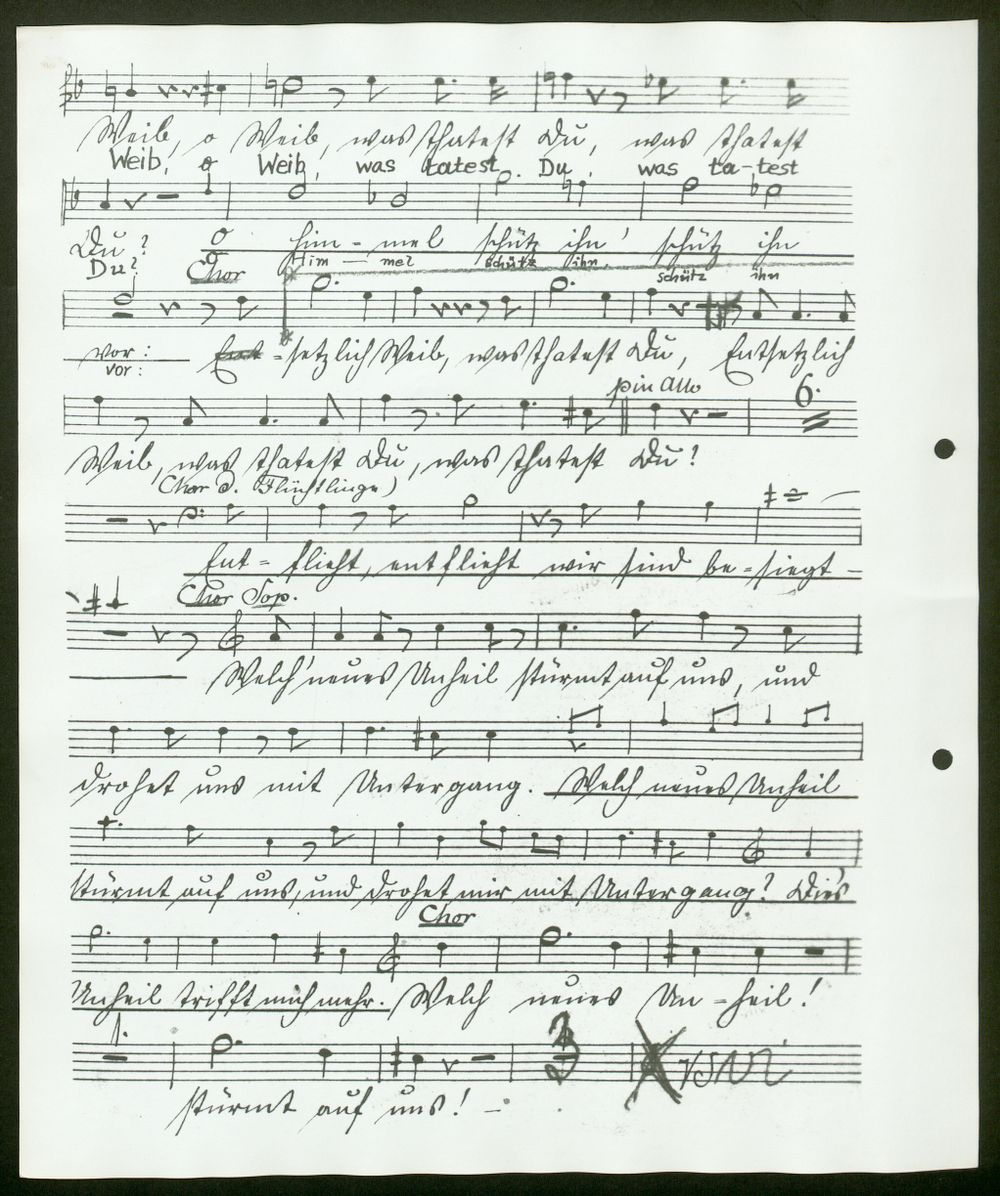 Weib, o Weib, was thatest Du, was thatest
Weib, o Weib, was tatest Du, was ta-test
Du? O Him-mel schütz ihn! schütz ihn
Du? Him-mel schütz ihn, schütz ihn
Chor
vor: Ent-setzlich Weib, was thatest Du, Entsetzlich
vor:
più Allo
6.
Weib, was thatest Du, was thatest Du?
Chor d. Flüchtlinge)
Ent-flieht, entflieht wir sind be-siegt –
Chor Sop.
Welch' neues Unheil stürmt auf uns, und
drohet uns mit Untergang. Welch neues Unheil
stürmt auf uns, und drohet mir mit Untergang? Dies
Chor
Unheil trifft mich mehr. Welch neues Un-heil!
3
stürmt auf uns! –